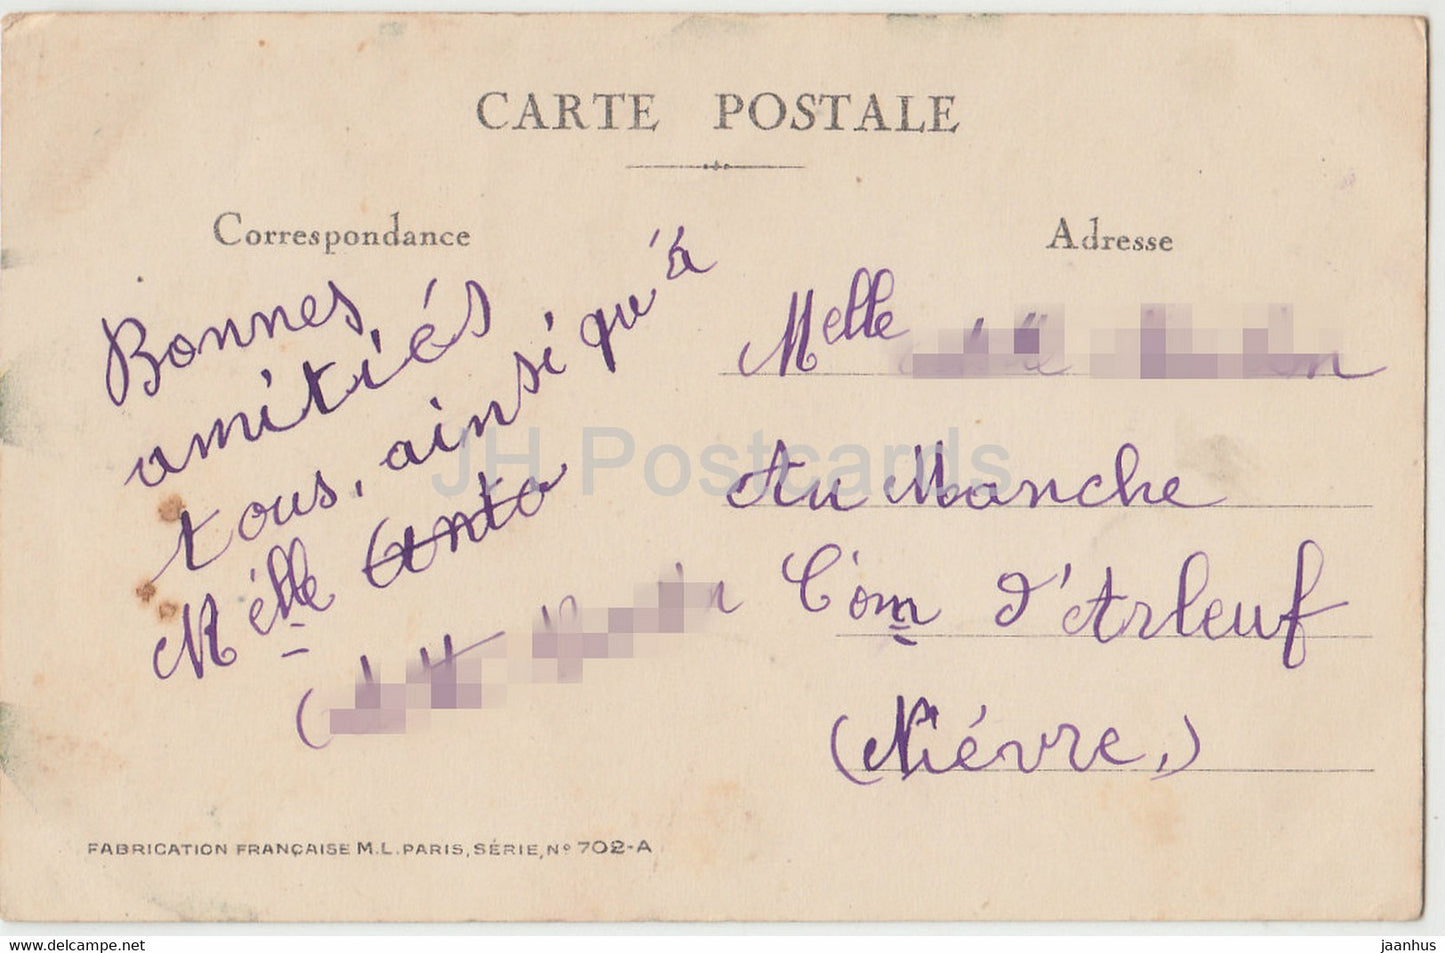 CARTE POSTALE
Correspondance
Bonnes
amitiés
tous, ainsi qu'à
Melle
Adresse
Melle
Au Manche
Com d'Arleuf
(Nièvre,)
FABRICATION FRANÇAISE M.L. PARIS, SÉRIE, No 702-A
JH Postcards
https://www.delcampe.net
jaanhus